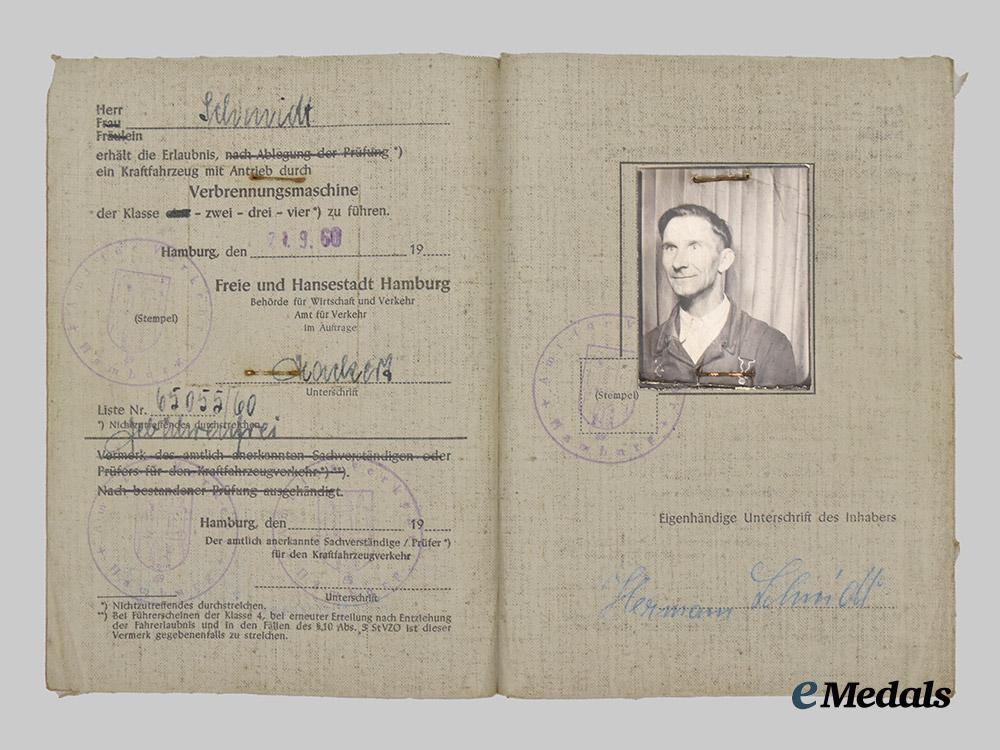 Herr
Frau
Fräulein
Schmidt
erhält die Erlaubnis, nach Ablegung der Prüfung *)
ein Kraftfahrzeug mit Antrieb durch
Verbrennungsmaschine
der Klasse – zwei – drei – vier *) zu führen.
Hamburg, den 21.9.60 19
Freie und Hansestadt Hamburg
Behörde für Wirtschaft und Verkehr
Amt für Verkehr
im Auftrage
(Stempel)
Unterschrift
Liste Nr. 65055/60
*) Nichtzutreffendes durchstreichen.
Gebührenfrei
Vermerk des amtlich anerkannten Sachverständigen oder
Prüfers für den Kraftfahrzeugverkehr *) **).
Nach bestandener Prüfung ausgehändigt.
Hamburg, den 19
Der amtlich anerkannte Sachverständige / Prüfer *)
für den Kraftfahrzeugverkehr
Unterschrift
*) Nichtzutreffendes durchstreichen.
**) Bei Führerscheinen der Klasse 4, bei erneuter Erteilung nach Entziehung
der Fahrerlaubnis und in den Fällen des § 10 Abs. 3 StVZO ist dieser
Vermerk gegebenenfalls zu streichen.
Amt für Verkehr
Hamburg
(Stempel)
Eigenhändige Unterschrift des Inhabers
Hermann Schmidt
eMedals